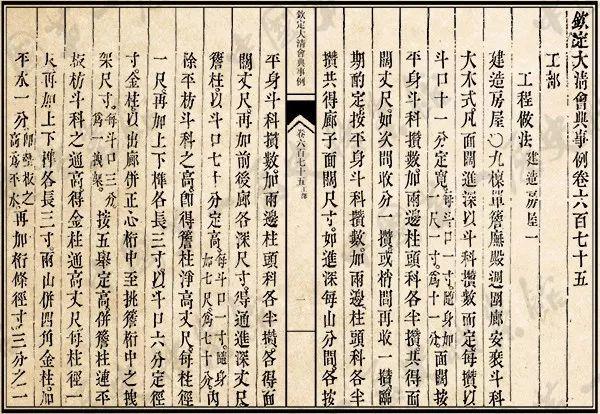 欽定大清會典事例卷六百七十五
工部
工程做法 建造房屋一
建造房屋〇九檁單簷廡殿週圍廊安裝斗科
大木式凡面闊進深以斗科攢數而定每攢以
斗口十一分定寬每斗口一寸。隨身加一尺一寸。爲十一分。面闊按
平身斗科攢數加兩邊柱頭科各半攢共得面
闊丈尺如次間收分一攢或梢間再收一攢臨
期酌定按平身斗科攢數加兩邊柱頭科各半
攢共得廊子面闊尺寸如進深每山分間各按
欽定大清會典事例 卷六百七十五 工部 一
平身斗科攢數加兩邊柱頭科各半攢各得面
闊丈尺再加前後廊各深尺寸得通進深丈尺
簷柱以斗口七十分定高每斗口一寸。隨身加七尺爲七十分。內
除平枋斗科之高卽得簷柱淨高丈尺每柱徑
一尺再加上下榫各長三寸以斗口六分定徑
寸金柱以出廊併正心桁中至挑簷桁中之拽
架尺寸每斗口三分。爲一拽架。按五舉定高併簷柱連平
板枋斗科之通高得金柱通高丈尺每柱徑一
尺再加上下榫各長三寸兩山併四角金柱加
平水一分高卽墊板之高爲平水。再加桁條徑寸三分之一